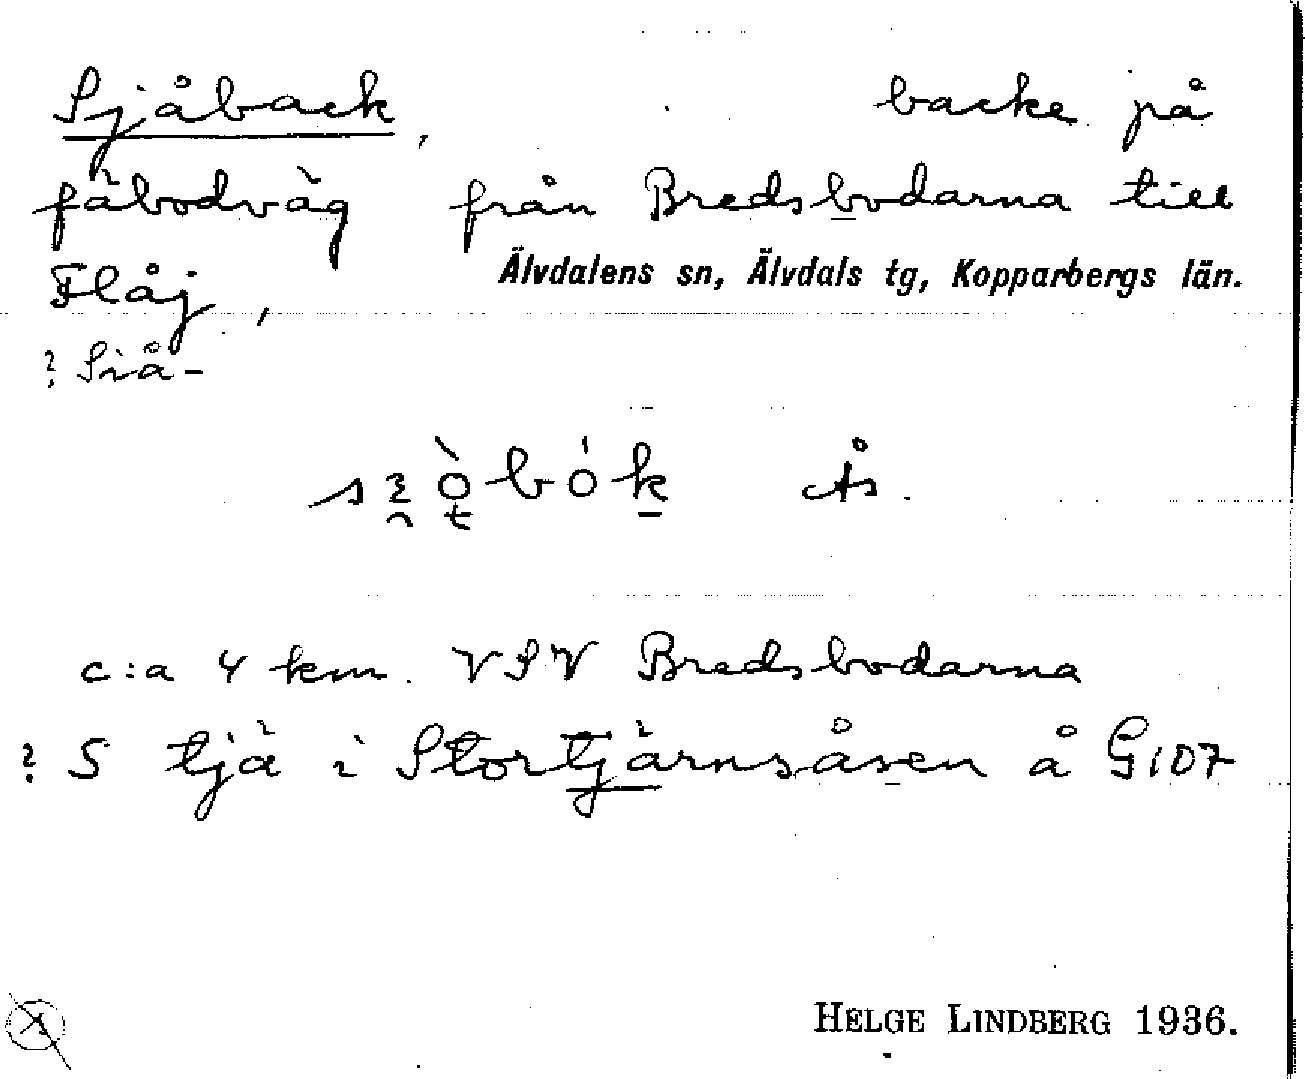 Sjåback, backe på
fäbodväg från Bredsbodarna till
Flåj,
Älvdalens sn, Älvdals tg, Kopparbergs län.
? Siå-
c:a 4 km. VSV Bredsbodarna
? S tjä i Stortjärnsåsen å G107
HELGE LINDBERG 1936.